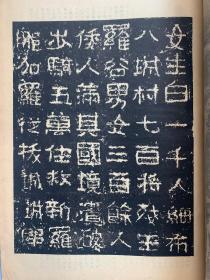 女生白一千人細布
八城村七百將殘王
羅谷男女三百餘人
倭人滿其國境潰破
步騎五萬住救新羅
加羅從拔城城即